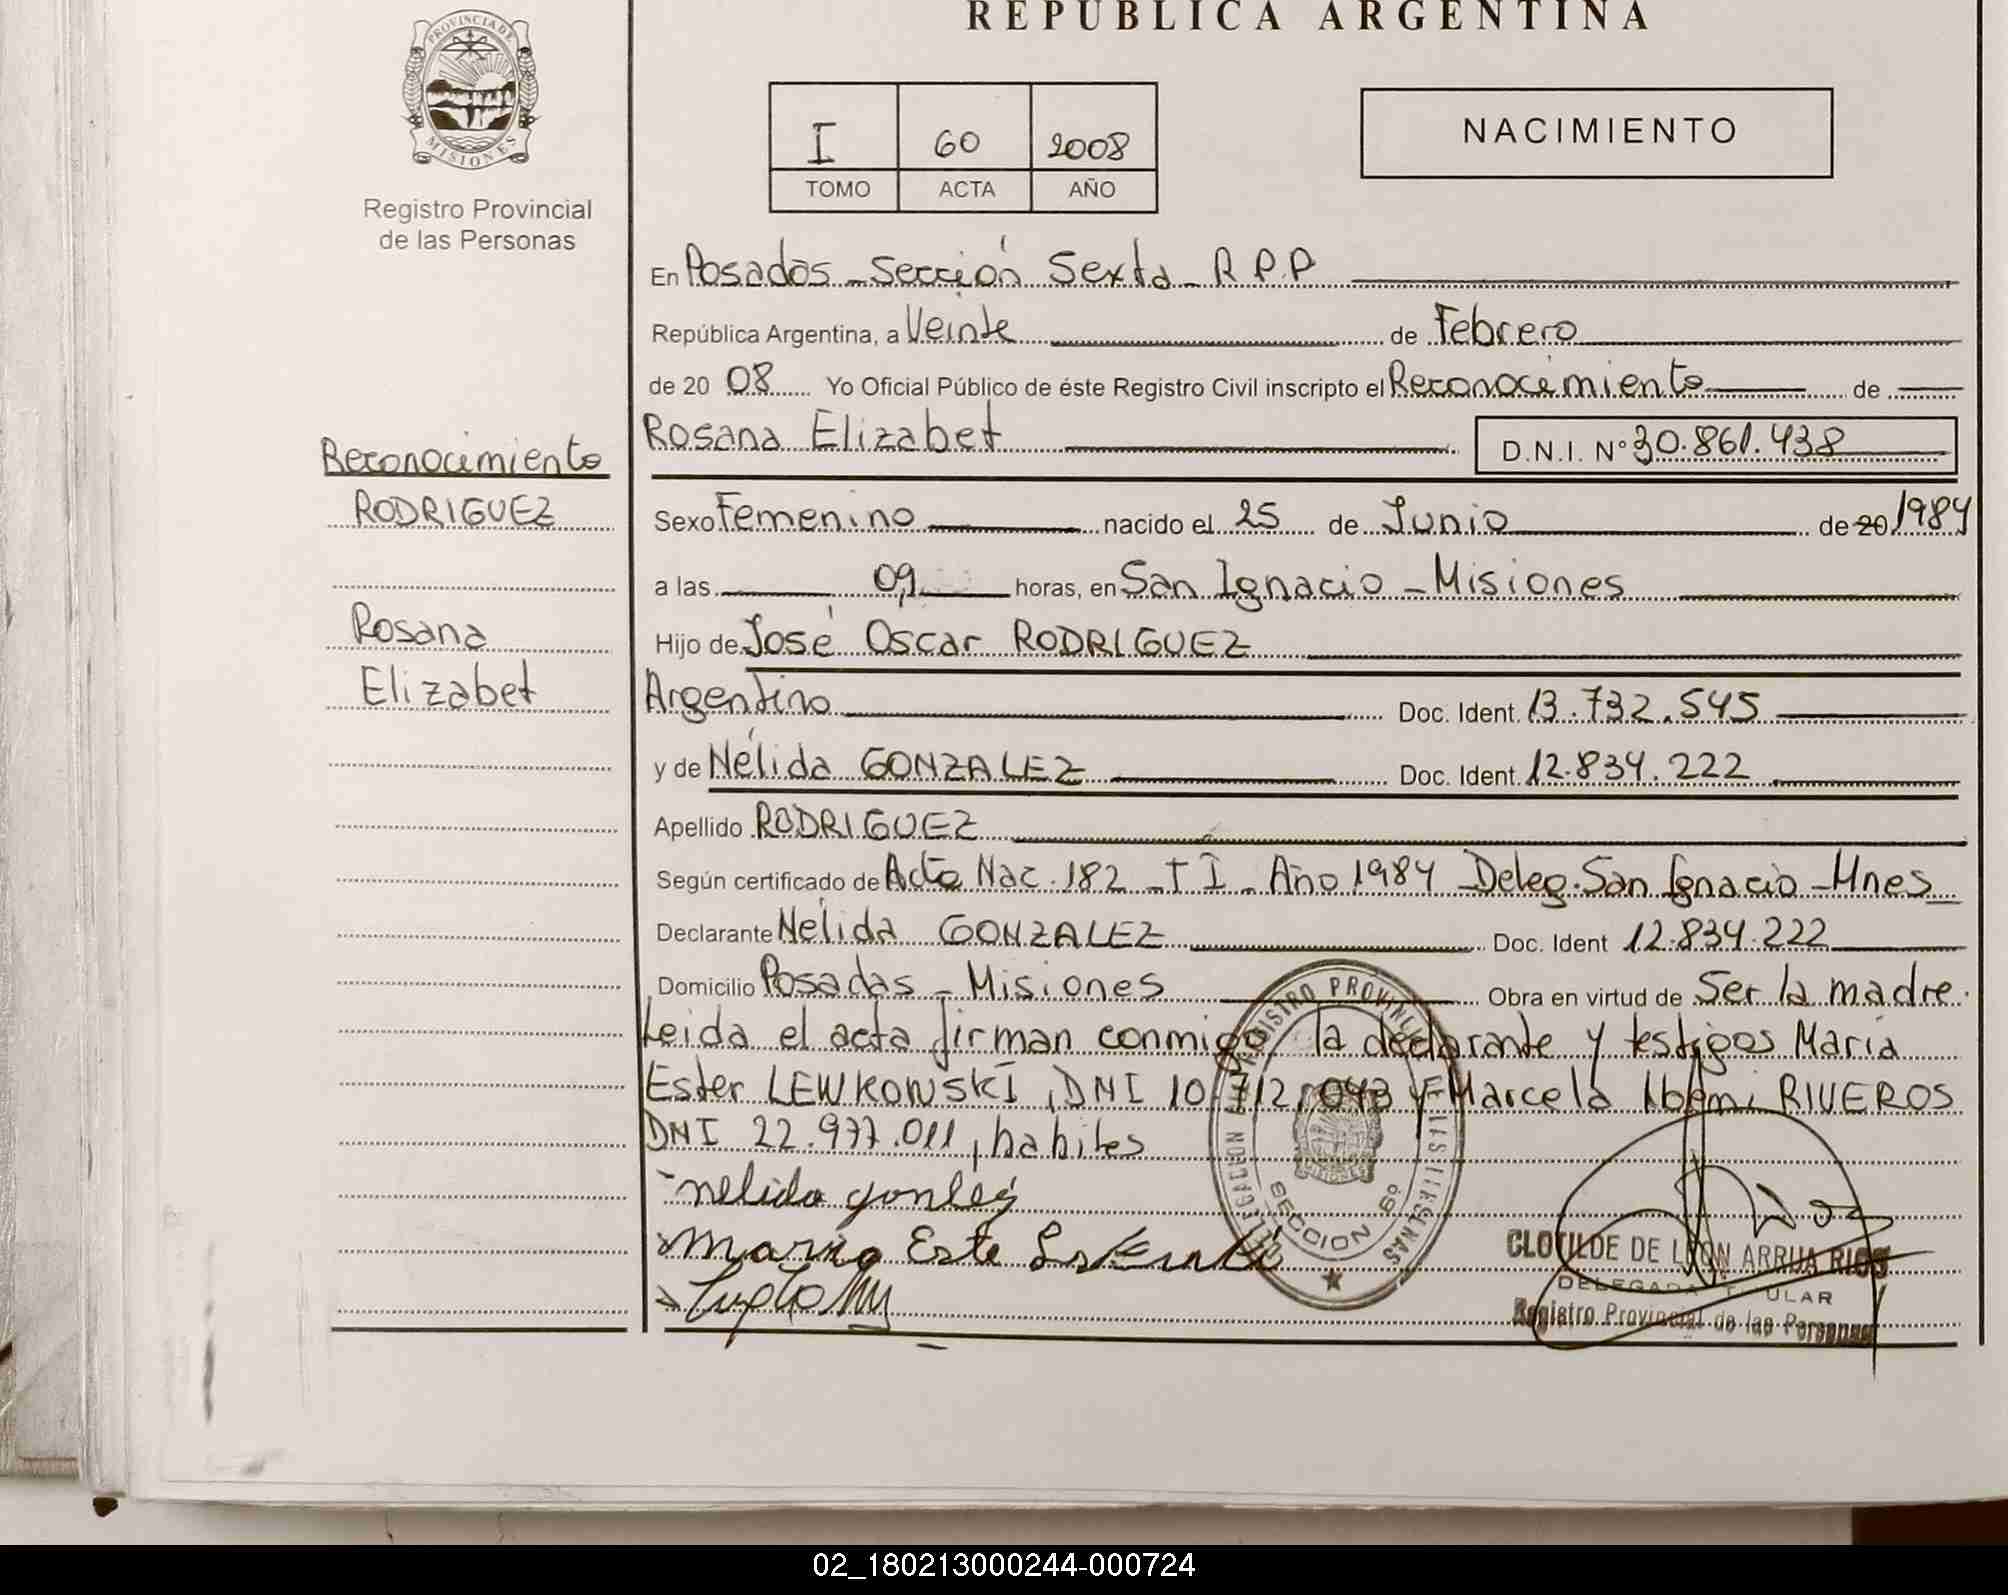 REPUBLICA ARGENTINA
PROVINCIA DE
MISIONES
Registro Provincial
de las Personas
I 60 2008
TOMO ACTA AÑO
NACIMIENTO
En Posadas - Sección Sexta - R.P.P
República Argentina, a Veinte de Febrero
de 20 08 Yo Oficial Público de éste Registro Civil inscripto el Reconocimiento de
Rosana Elizabet D.N.I. N° 30.861.438
Reconocimiento
RODRIGUEZ
Rosana
Elizabet
Sexo Femenino nacido el 25 de Junio de 20 1984
a las 09, horas, en San Ignacio - Misiones
Hijo de José Oscar RODRIGUEZ
Argentino Doc. Ident. 13.732.545
y de Nélida GONZALEZ Doc. Ident. 12.834.222
Apellido RODRIGUEZ
Según certificado de Acta Nac. 182 - T I - Año 1984 - Deleg. San Ignacio - Mnes
Declarante Nélida GONZALEZ Doc. Ident 12.834.222
Domicilio Posadas - Misiones Obra en virtud de Ser la madre.
Leida el acta firman conmigo, la declarante y testigos Maria
Ester LEWKOWSKI, DNI 10.712.043 y Marcela Noemi RIVEROS
DNI 22.977.011, habiles
nelida
Maria Este
SECCION 6º
CLOTILDE DE LEON ARRUA RIOS
DELEGADA TITULAR
Registro Provincial de las Personas
02_180213000244-000724